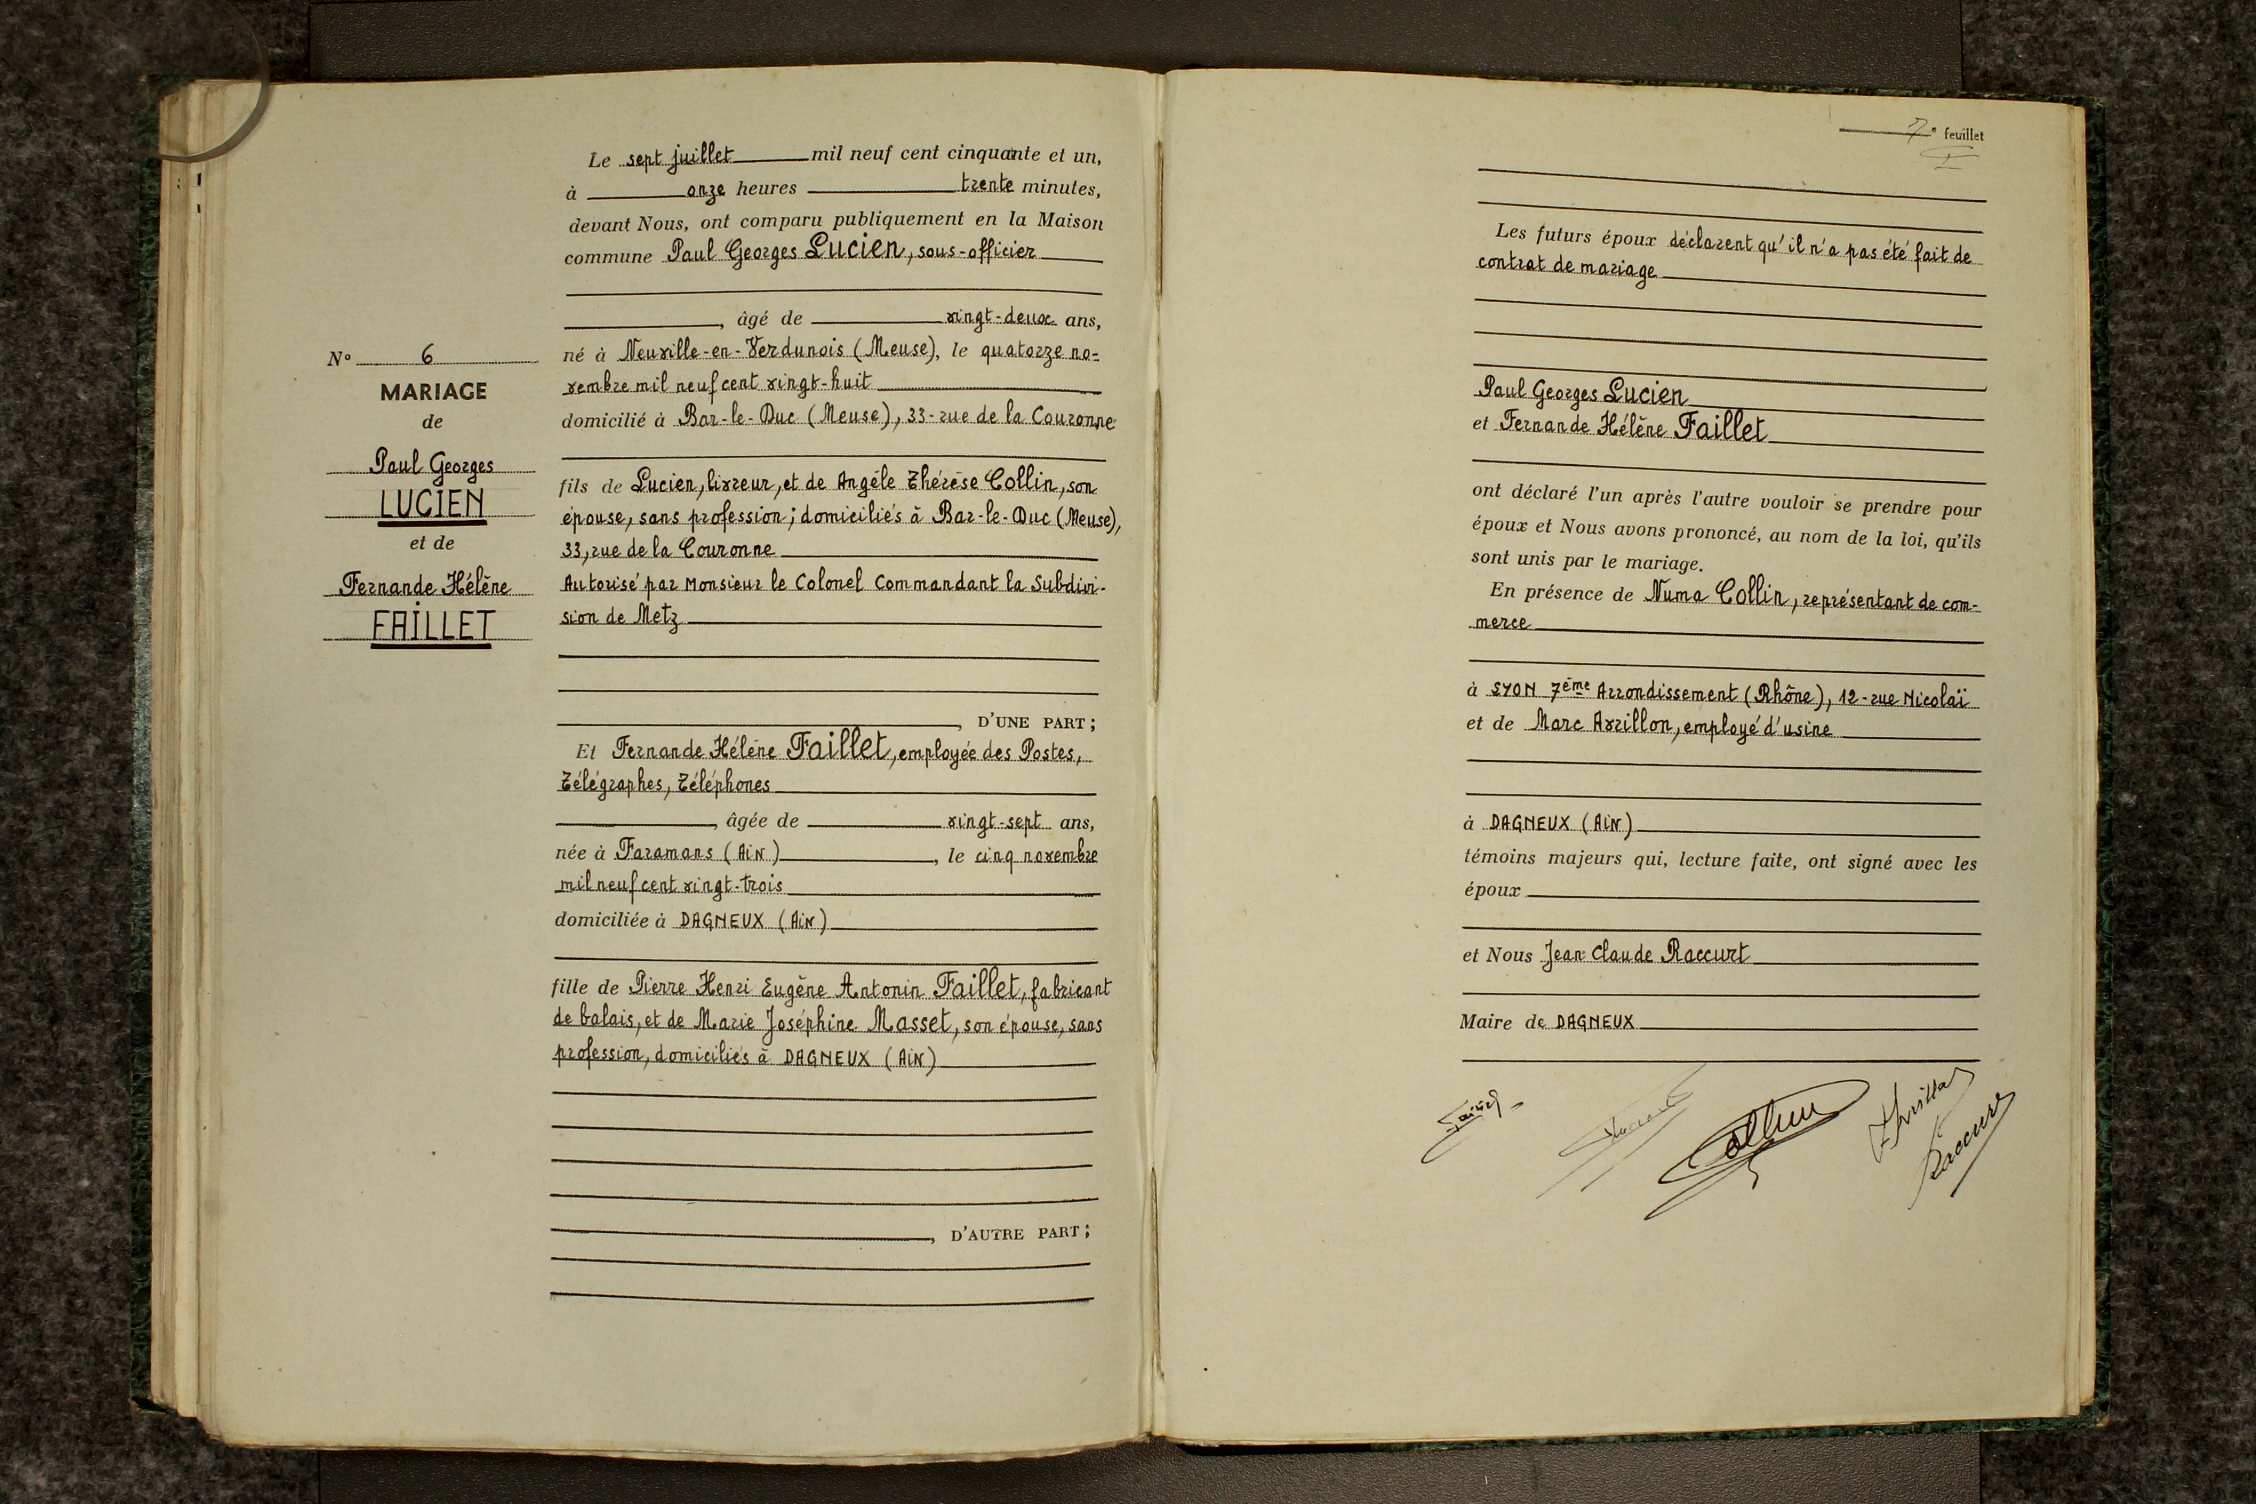 N° 6
MARIAGE
de
Paul Georges
LUCIEN
et de
Fernande Hélène
FAILLET
Le sept juillet mil neuf cent cinquante et un,
à onze heures trente minutes,
devant Nous, ont comparu publiquement en la Maison
commune Paul Georges Lucien, sous-officier
, âgé de vingt-deux ans,
né à Neuville-en-Verdunois (Meuse), le quatorze no-
vembre mil neuf cent vingt-huit
domicilié à Bar-le-Duc (Meuse), 33-rue de la Couronne
fils de Lucien, livreur, et de Angèle Thérèse Collin, son
épouse, sans profession; domiciliés à Bar-le-Duc (Meuse),
33, rue de la Couronne
Autorisé par Monsieur le Colonel Commandant la Subdivi-
sion de Metz
, D'UNE PART;
Et Fernande Hélène Faillet, employée des Postes,
Télégraphes, Téléphones
, âgée de vingt-sept ans,
née à Faramans (Ain), le cinq novembre
mil neuf cent vingt-trois
domiciliée à DAGNEUX (Ain)
fille de Pierre Henri Eugène Antonin Faillet, fabricant
de balais, et de Marie Joséphine Masset, son épouse, sans
profession, domiciliés à DAGNEUX (Ain)
, D'AUTRE PART;
7e feuillet
Les futurs époux déclarent qu'il n'a pas été fait de
contrat de mariage
Paul Georges Lucien
et Fernande Hélène Faillet
ont déclaré l'un après l'autre vouloir se prendre pour
époux et Nous avons prononcé, au nom de la loi, qu'ils
sont unis par le mariage.
En présence de Numa Collin, représentant de com-
merce
à LYON 7ème Arrondissement (Rhône), 12-rue Nicolaï
et de Marc Avrillon, employé d'usine
à DAGNEUX (Ain)
témoins majeurs qui, lecture faite, ont signé avec les
époux
et Nous Jean Claude Raccurt
Maire de DAGNEUX
Collin
Raccurt